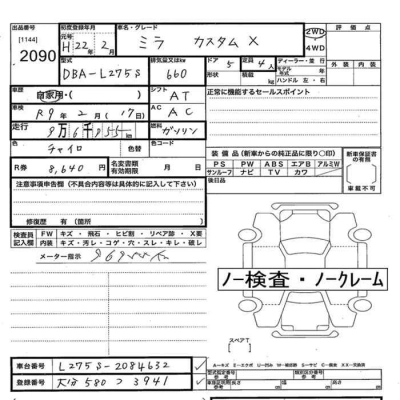 出品番号 初度登録年月 車名・グレード 評価点
[1144] 元号 H 22年 2月 ミラ カスタム X 2WD 4WD 外装 内装
2090 型式 排気量又はkw ドア 5 定員 4人 ディーラー・並行
DBA-L275S 660 積載量 kg モデル年式
ハンドル 左・右
車歴 自家用・( ) シフト AT 正常に機能するセールスポイント
車検 R9年 2月 (17日) AC AC
走行 9万6千955km 燃料 ガソリン
色 チャイロ 色替
装備品(新車からの純正品に限り〇印) 新車保証書の有無
R券 8,640円 名変期限 有効期限 月 日 PS PW ABS エアB アルミW
サンルーフ ナビ TV カワ 車載不可
注意事項申告欄(不具合内容等は具体的に記入して下さい) 後日品
修復歴 有(箇所 )
検査員記入欄 FW キズ・飛石・ヒビ割・リペア跡・X要
内装 キズ・汚レ・コゲ・穴・スレ・キレ・破レ
メーター指示
ノー検査・ノークレーム
スペアT
車台番号 L275S-2084632
登録番号 580 つ 3941